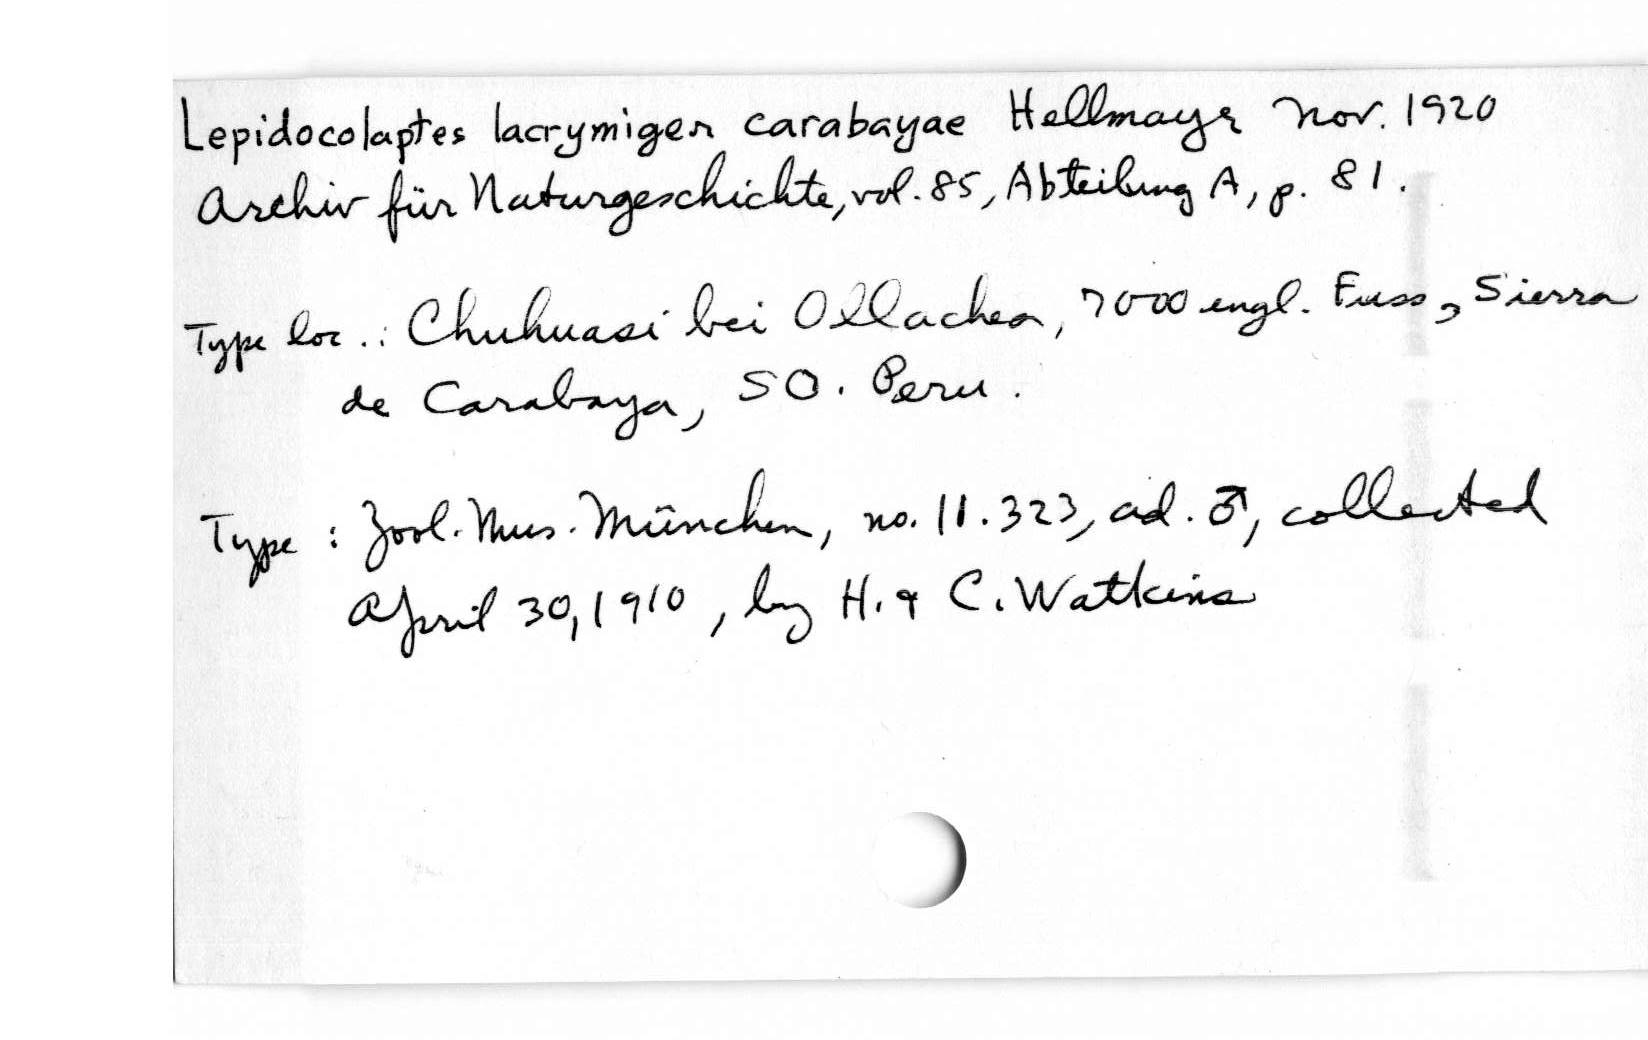 Lepidocolaptes lacrymiger carabayae Hellmayr Nov. 1920
Archiv für Naturgeschichte, vol. 85, Abteilung A, p. 81.
Type loc.: Chuhuasi bei Ollachea, 7000 engl. Fuss, Sierra
de Carabaya, SO. Peru.
Type: Zool. Mus. München, no. 11.323, ad. ♂, collected
April 30, 1910, by H. & C. Watkins